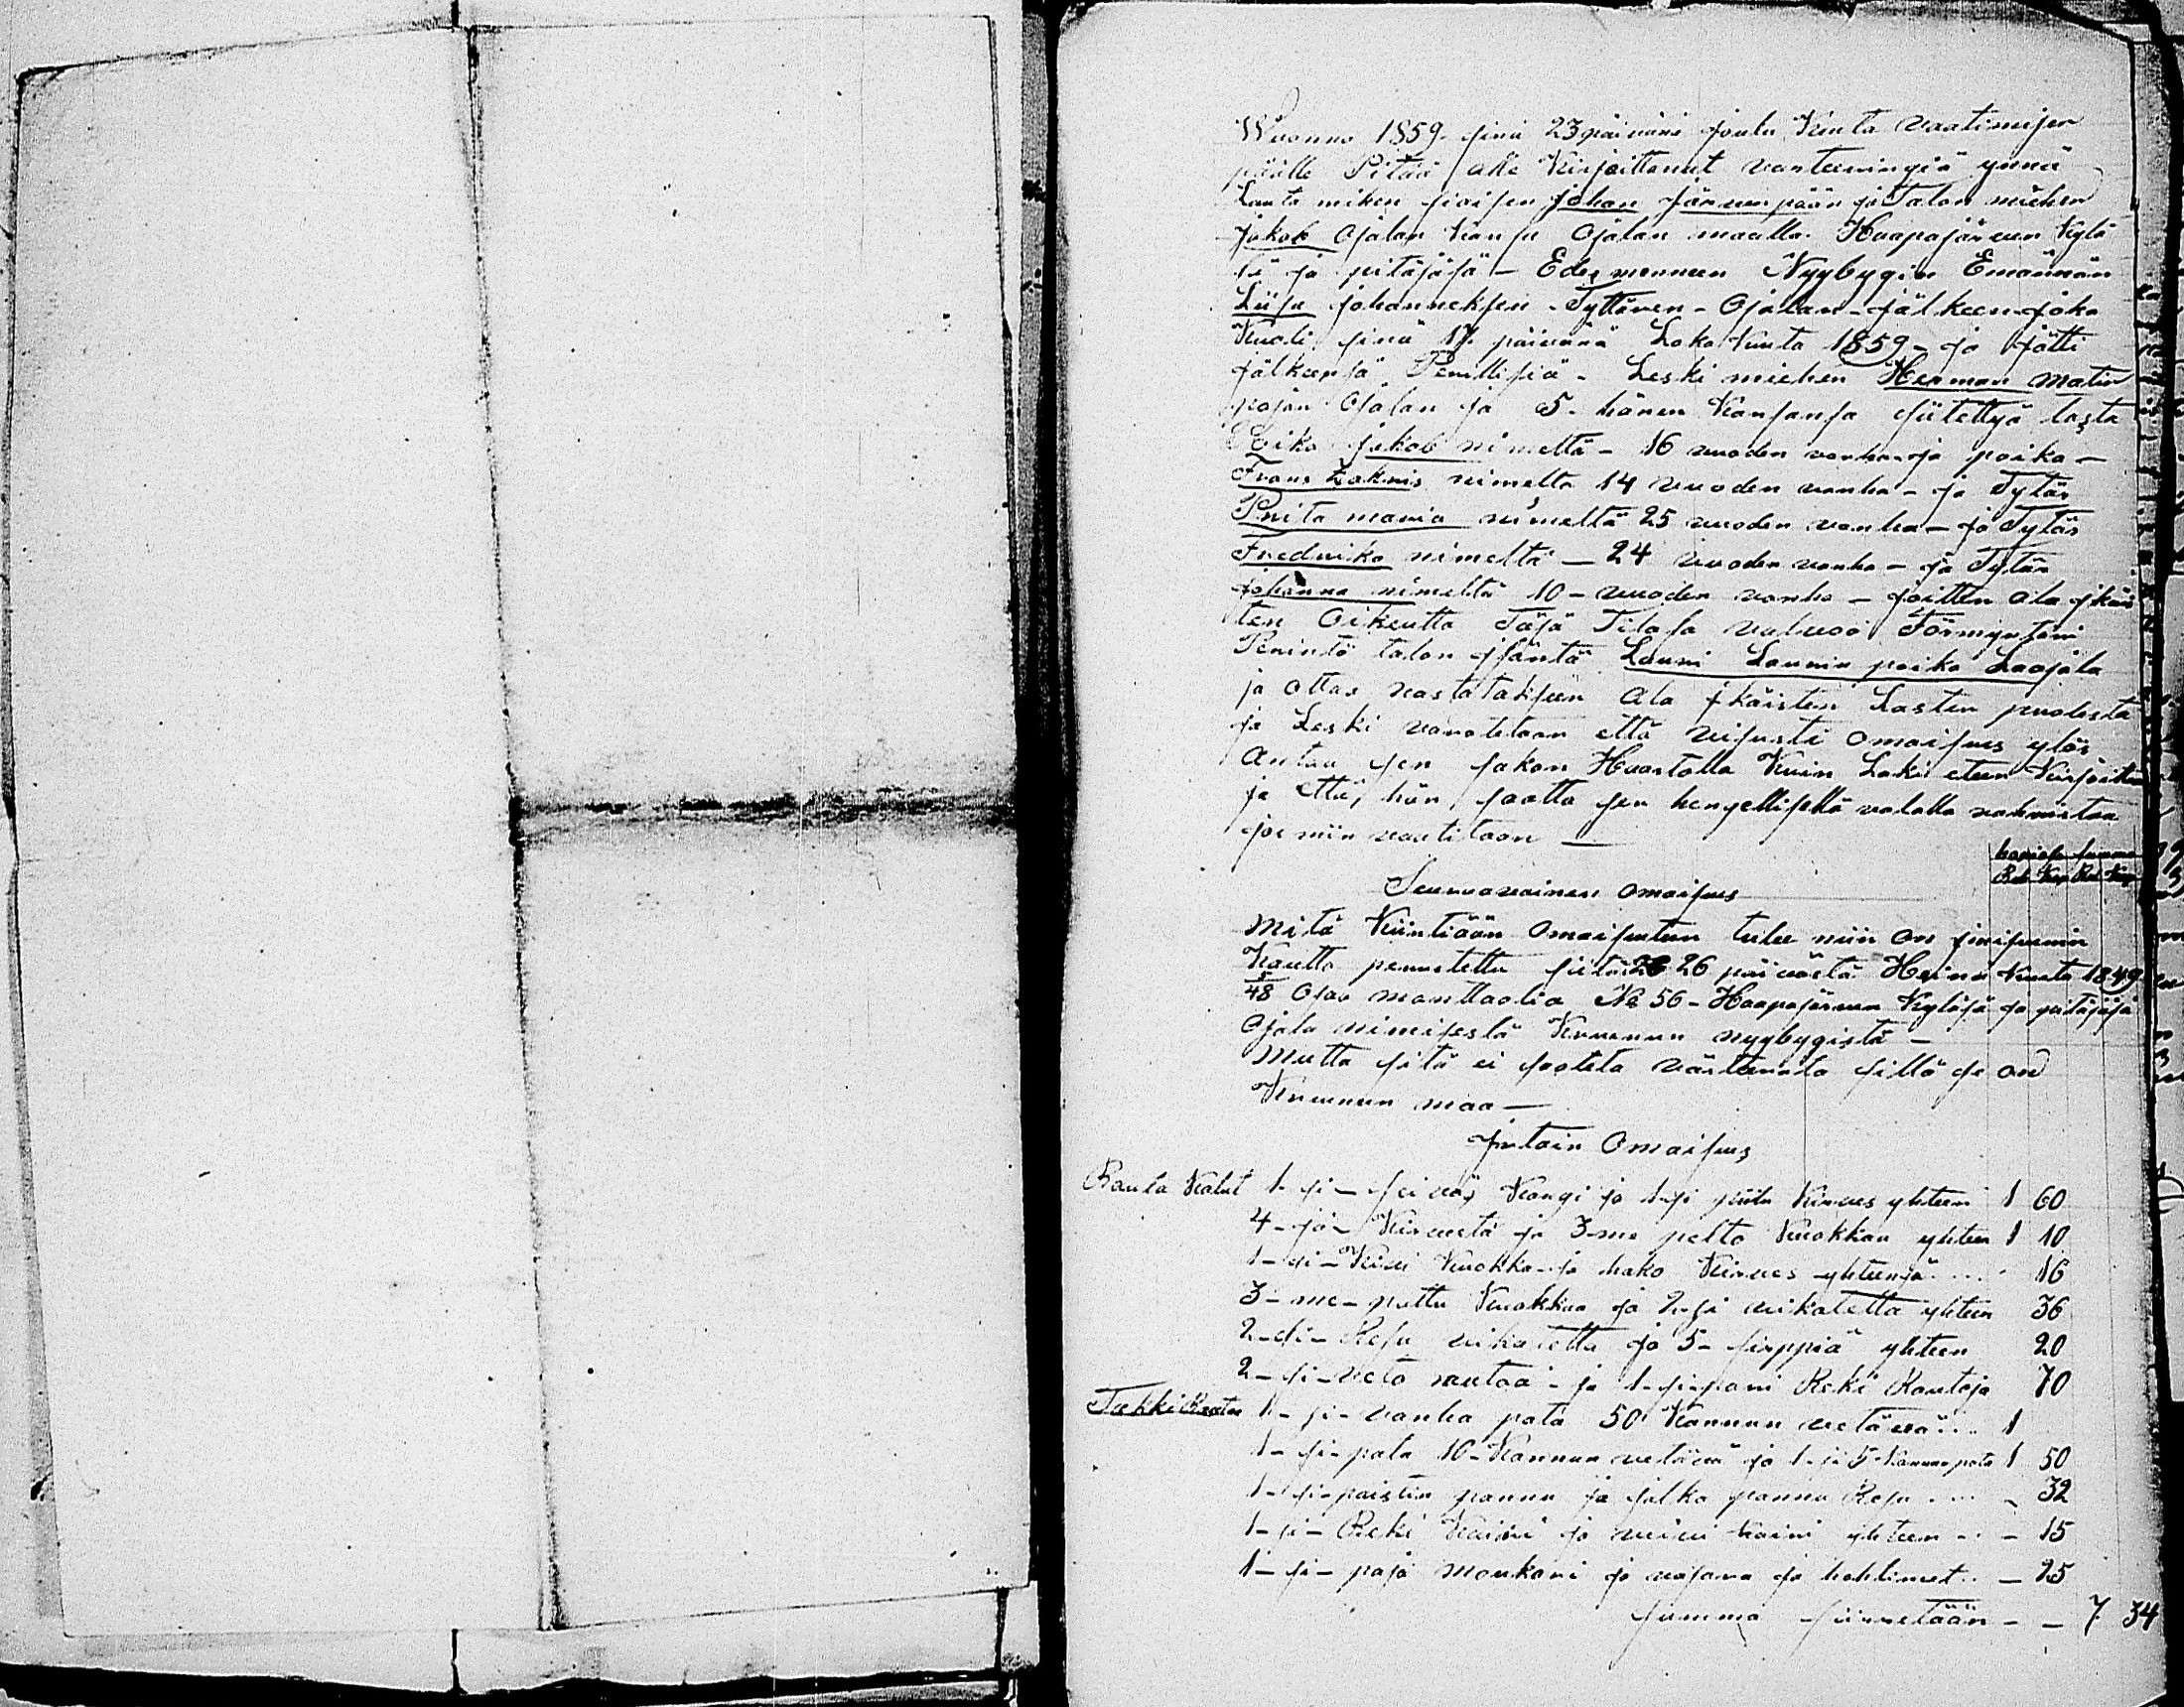 Wuonna 1859 sinä 23 päivänä joulu Kuuta vaatimisen
päälle Pitää alle Kirjoittanut varteeningiä ynnä
Lauta miken siaisen johan Järvenpään ja Talon miehen
Jakob Ojalan Kansa Ojalan maalla Haapajärven Kylä
sä ja pitäjäsä – Edes menneen Nyybygin Emännän
Liisa johanneksen - Tyttären - Ojalan - jälkeen joka
Kuoli sinä 17 päivänä Loka Kuuta 1859 – ja jätti
jälkeensä Perillisiä - Leski miehen Herman matin
pojan Ojalan ja 5 - hänen Kansansa siitettyä lasta
Poika jakob nimeltä – 16 vuoden vanha ja poika –
Frans nimeltä 14 vuoden vanha – ja Tytär
Priita maria nimeltä 25 vuoden vanha – ja Tytär
Fredrika nimeltä – 24 vuoden vanha – ja Tytär
johanna nimeltä 10 – vuoden vanha – joitten ala ikäis
ten Oikeutta Täsä Tilasa valvoo Förmyntäri
Perintö talon isäntä Lauri Laurin poika Laajala
ja ottaa vasta Ala ikäisten Lasten puolesta
ja Leski varotetaan että visusti omaisus ylös
Antaa sen jakon Haastolla Kuin Laki eteen Kirjoittaa
ja että, hän saatta sen hengellisellä valalla vahvistaa
jos niin vaatitaan —
summa
Rub Kop Rub Kop
Seuraavainen omaisus
Mitä Kiintiään Omaisuteen tulee niin on sinisumin
Kautta perustettu siitä 26 päivästä Heinä Kuuta 1849
5/48 Osao manttaalia No 56 – Haapajärven Kyläsä ja pitäjäsä
Ojala nimisestä Kruunun nyybygistä –
Mutta sitä ei saateta värteerata sillä se on
Kruunun maa —
Irtain Omaisus
Rauta Kalut 1-si – seiväs Kangi ja 1-si piilu Kirves yhteen 1 60
4-jä – Kirvestä ja 3-me pelto Kuokkaa yhteen 1 10
1-si – Kivi Kuokka ja hako Kirves yhteensä .... 16
3-me – Kuokkaa ja 2-si vikatetta yhteen 36
2-si – Resu vikatetta ja 5 – sirppiä yhteen 20
2-si – veto rautaa – ja 1-si pari Reki Rautoja 70
1-si – vanha pata 50 Kannun vetävä ... 1
1-si – pata 10 – Kannun vetävä ja 1-si 5 – Kannun pata 1 50
1-si – paistin pannu ja jalka pannu Resu .... – 32
1-si – Reki Kaivi ja kaivi yhteen .. – 15
1-si – paja moukari ja vasara ja hohtimet .. – 25
summa siirretään – – 7 34